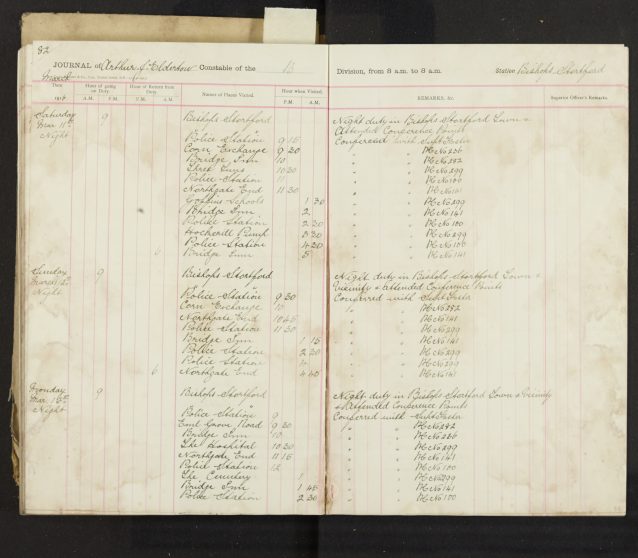 82
JOURNAL of Arthur J. Elderton Constable of the B Division, from 8 a.m. to 8 a.m. Station Bishops Stortford
March
Date Hour of going on Duty Hour of Return from Duty Names of Places Visited. Hour when Visited. REMARKS, &c. Superior Officer's Remarks.
191 A.M. P.M. A.M. P.M. P.M. A.M.
Saturday 9 Bishops Stortford Night duty in Bishops Stortford Town &
Mar 11th Attended Conference Points
Night Police Station 9 15 Conferred with Supt
Corn Exchange 9 30 " " PC No 226
Bridge Inn 10 " " PC No 292
10 30 " " PC No 299
Police Station 11 " " PC No 100
Northgate End 11 30 " " PC No 141
Schools 1 30 " " PC No 299
Bridge Inn 2 " " PC No 141
Police Station 2 30 " " PC No 100
Hockerill Pump 3 30 " " PC No 299
Police Station 4 30 " " PC No 100
Bridge Inn 5 " " PC No 141
Sunday 9 Bishops Stortford Night duty in Bishops Stortford Town &
March 12th Vicinity & Attended Conference Points
Night Police Station 9 30 Conferred with Supt
Corn Exchange 10 " " PC No 292
Northgate End 10 45 " " PC No 141
Police Station 11 30 " " PC No 299
Bridge Inn 1 15 " " PC No 141
Police Station 2 30 " " PC No 299
Police Station 4 " " PC No 299
6 Northgate End 4 40 " " PC No 141
Monday 9 Bishops Stortford Night duty in Bishops Stortford Town & Vicinity
Mar 13th & Attended Conference Points
Night Police Station 9 Conferred with Supt
Grove Road 9 30 " " PC No 292
Bridge Inn 10 " " PC No 226
The Hospital 10 30 " " PC No 299
Northgate End 11 15 " " PC No 141
Police Station 12 " " PC No 100
The Cemetery 1 " " PC No 299
Bridge Inn 1 45 " " PC No 141
Police Station 2 30 " " PC No 100